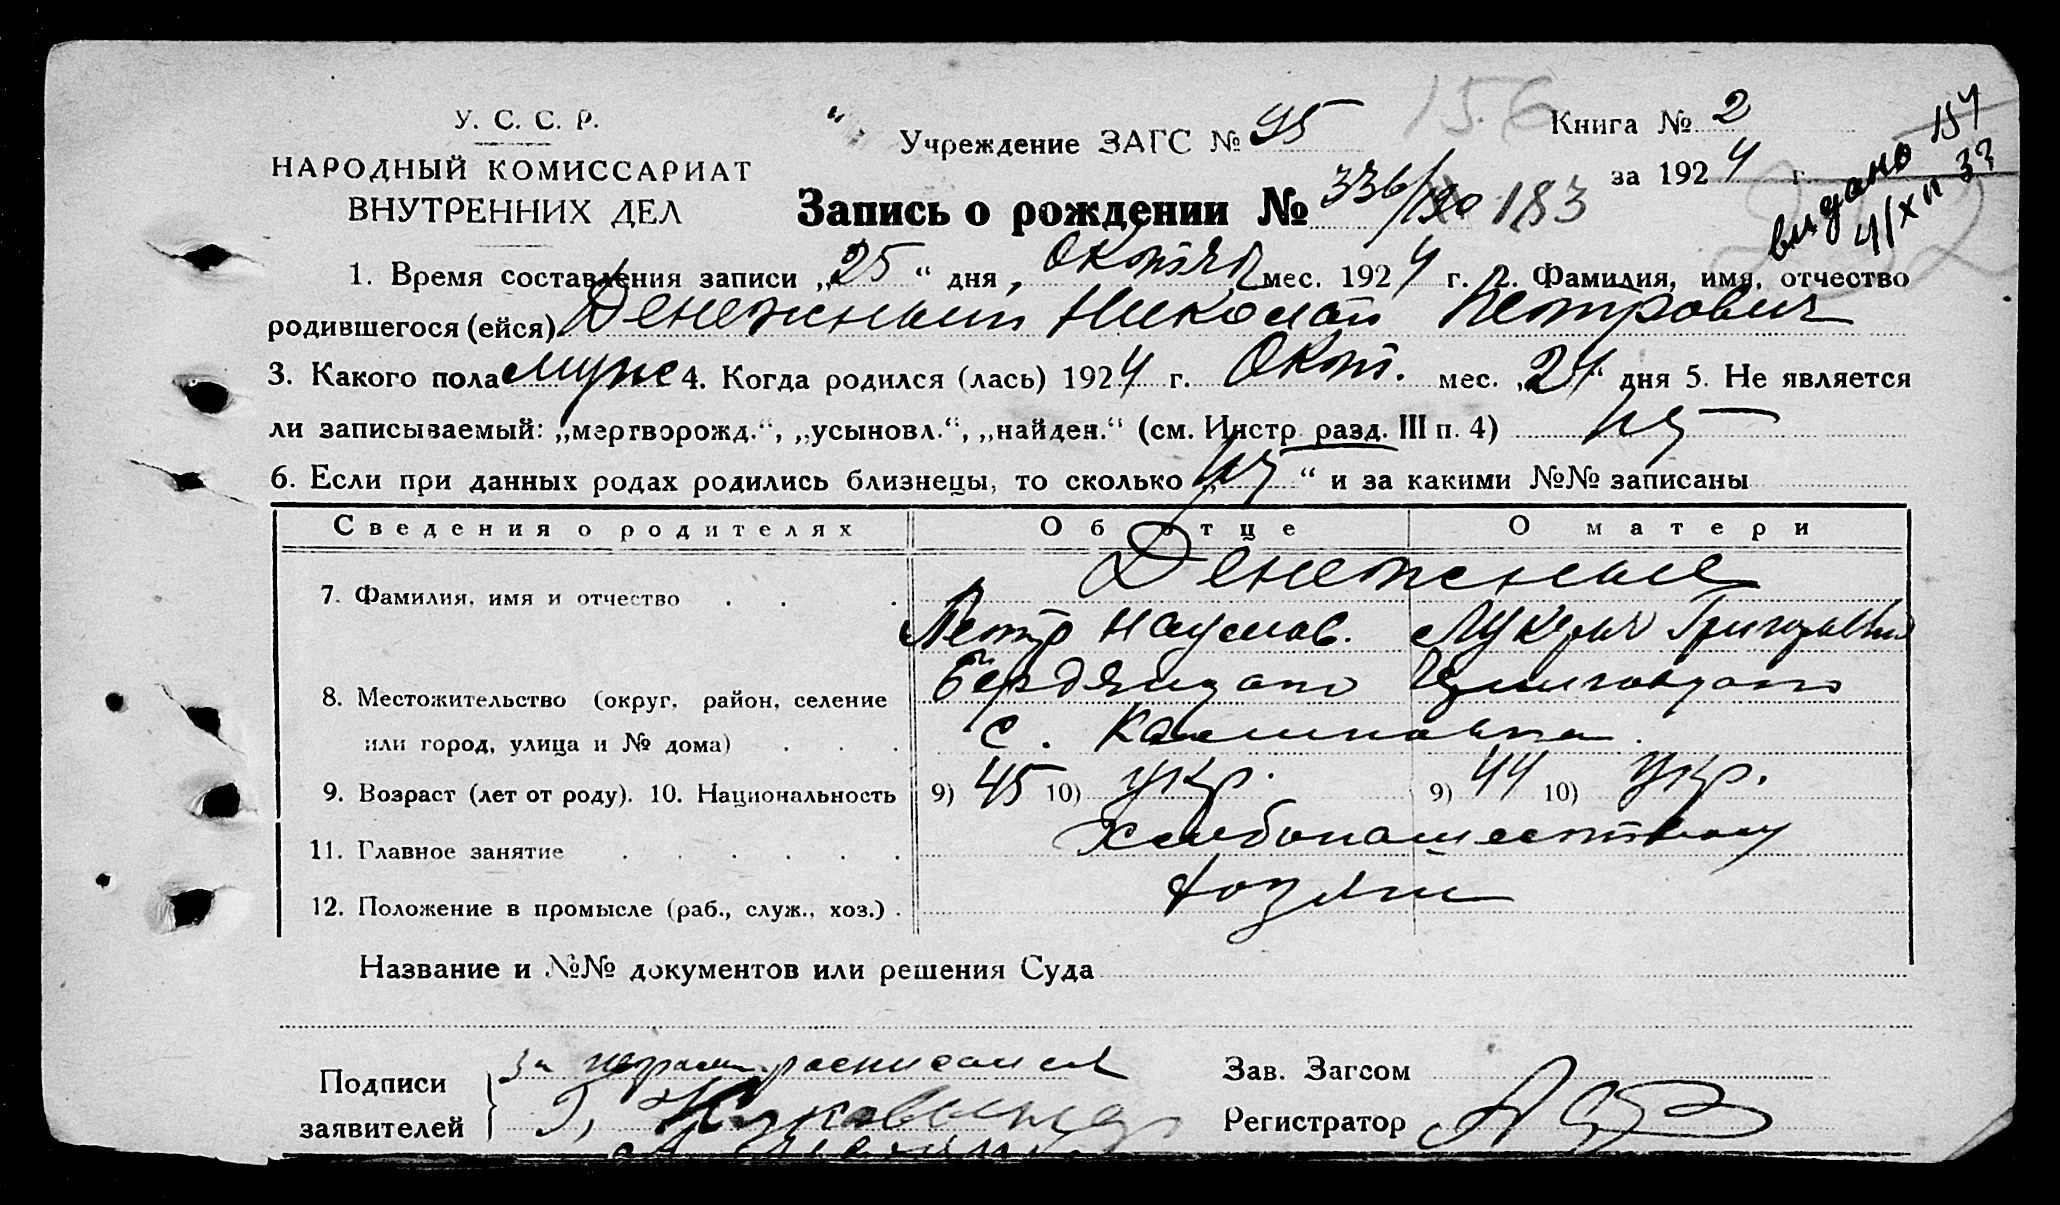 У. С. С. Р.
НАРОДНЫЙ КОМИССАРИАТ
ВНУТРЕННИХ ДЕЛ
Учреждение ЗАГС № 95
156
Книга № 2
за 1924 г.
выдано
Запись о рождении № 336/190 183
1. Время составления записи „25“ дня, Октяб мес. 1924 г. 2. Фамилия, имя, отчество
родившегося (ейся) Денежный Николай Петрович
3. Какого пола муж 4. Когда родился (лась) 1924 г. Окт. мес. „24“ дня 5. Не является
ли записываемый: „мертворожд.“, „усыновл.“, „найден.“ (см. Инстр. разд. III п. 4)
6. Если при данных родах родились близнецы, то сколько „ “ и за какими №№ записаны
Сведения о родителях Об отце О матери
Денежные
7. Фамилия, имя и отчество
Петр Наумов. Лукерья Григорьевна
8. Местожительство (округ, район, селение
или город, улица и № дома)
с.
9. Возраст (лет от роду). 10. Национальность 9) 45 10) укр. 9) 44 10) укр.
11. Главное занятие Хлебопашеством
12. Положение в промысле (раб., служ., хоз.) хозяин
Название и №№ документов или решения Суда
Подписи
заявителей
за расписался
Зав. Загсом
Регистратор